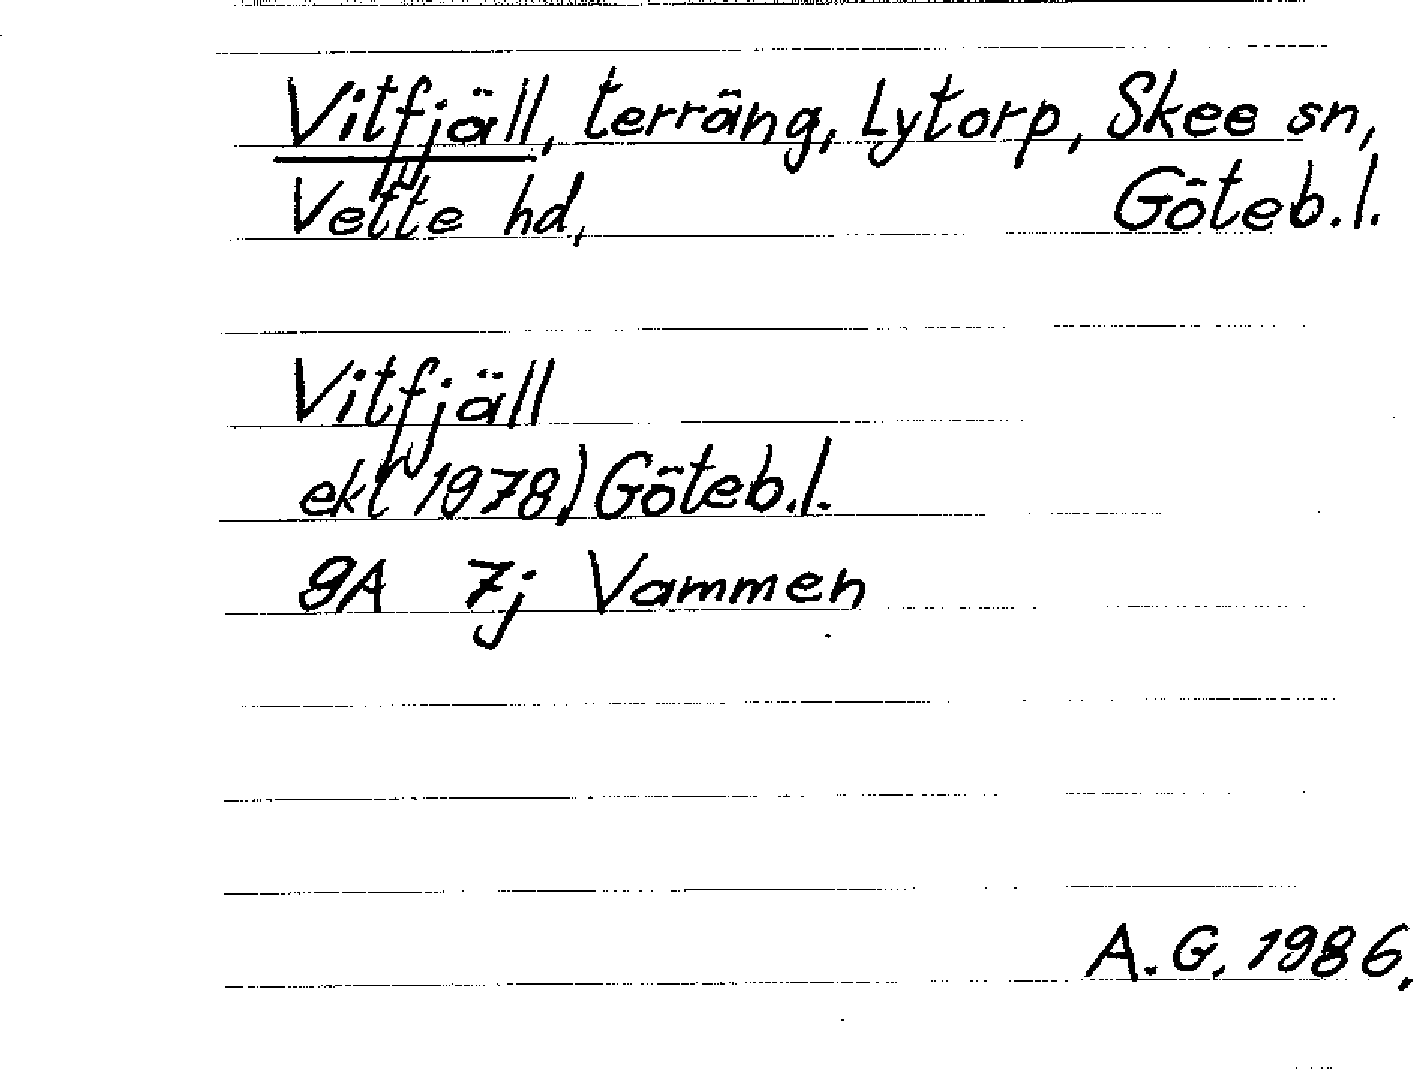 Vitfjäll, terräng, Lytorp, Skee sn,
Vette hd, Göteb.l.
Vitfjäll
ekl 1978,) Göteb.l.
9A 7j Vammen
A.G. 1986.